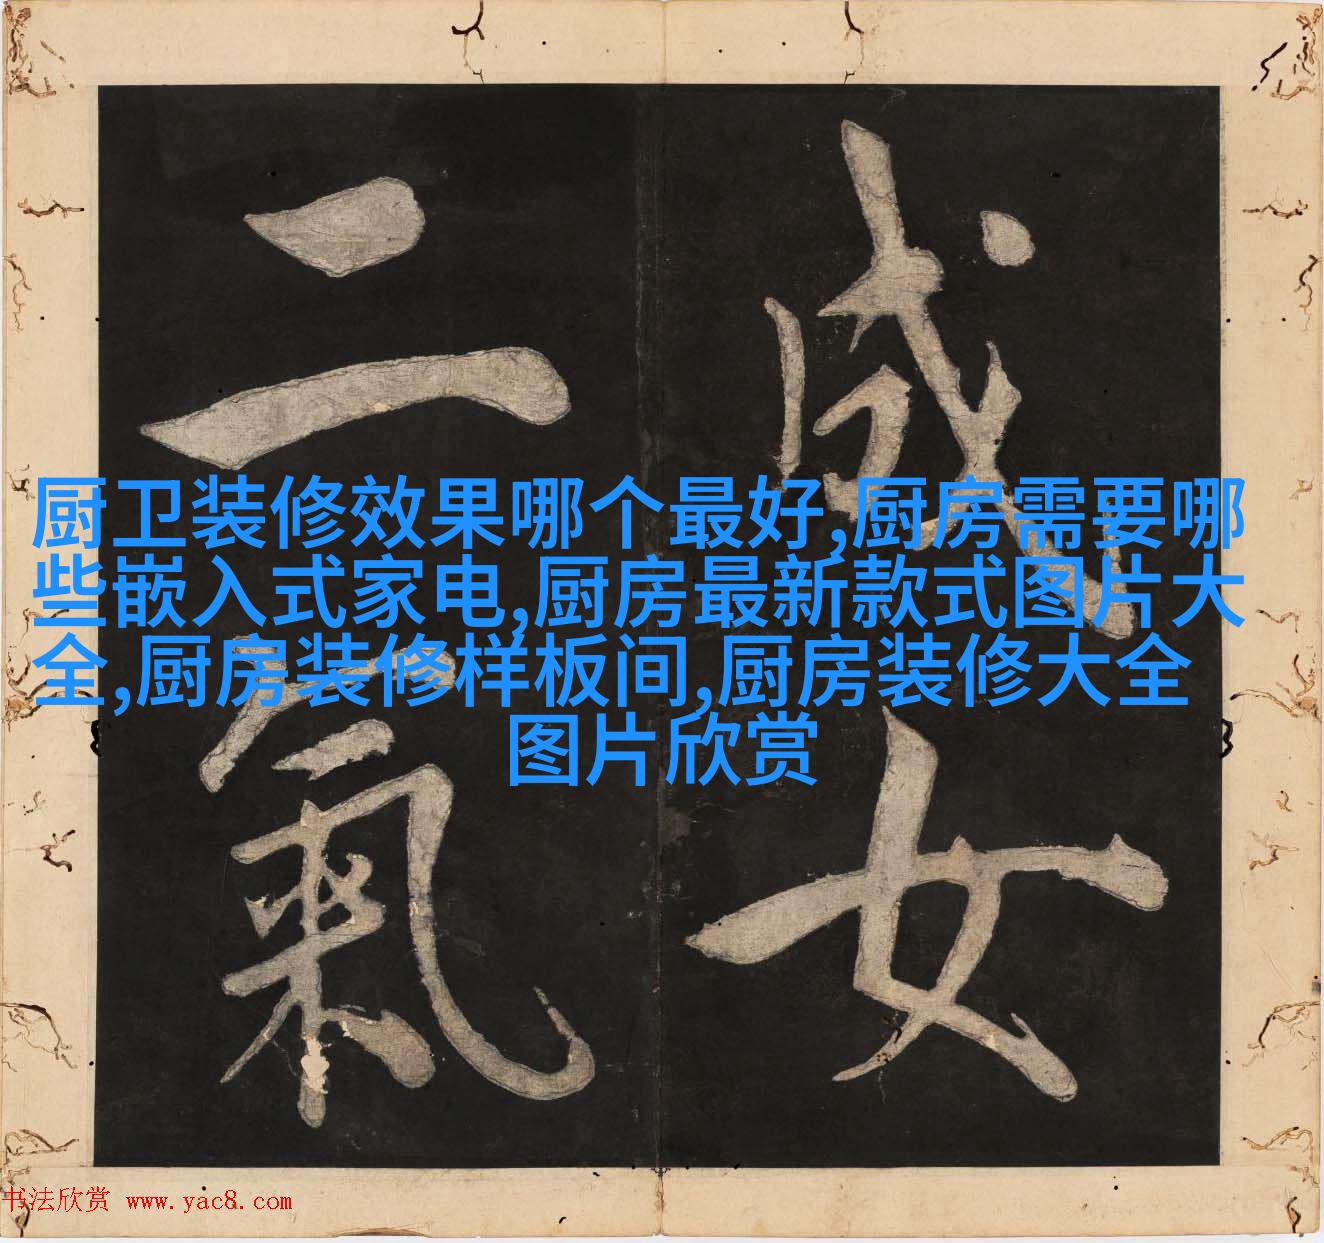 成女
二氣
厨卫装修效果哪个最好,厨房需要哪
些嵌入式家电,厨房最新款式图片大
全,厨房装修样板间,厨房装修大全
图片欣赏
书法欣赏 www.yac8.com